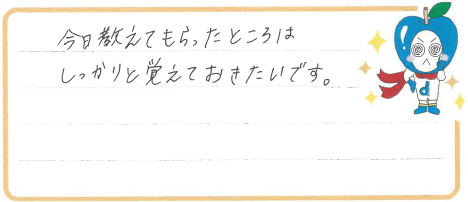 今日教えてもらったところは
しっかりと覚えておきたいです。
d